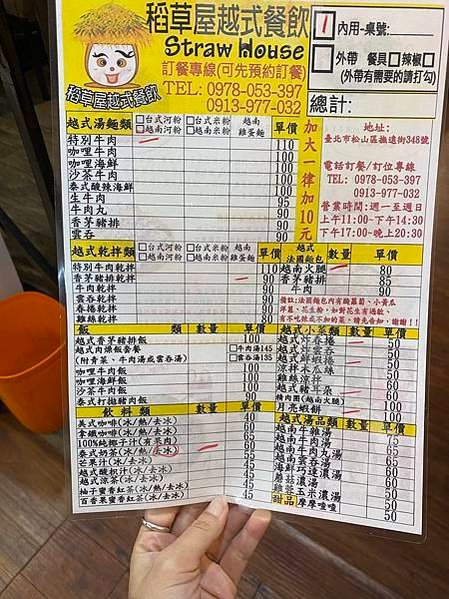 稻草屋越式餐飲
Straw House
訂餐專線(可先預約訂餐)
TEL: 0978-053-397
0913-977-032
稻草屋越式餐飲
1 內用-桌號:
外帶 餐具□辣椒□
(外帶有需要的請打勾)
總計:
越式湯麵類 □台式河粉 □台式米粉 越南
□越南河粉 □越南米粉 雞蛋麵 單價
特別牛肉 110
咖哩牛肉 100
咖哩海鮮 100
沙茶牛肉 100
泰式酸辣海鮮 100
生牛肉 95
牛肉丸 90
香茅豬排 90
雲吞 90
加大一律加10元
地址:
臺北市松山區撫遠街348號
電話訂餐/訂位專線
TEL: 0978-053-397
0913-977-032
營業時間:週一至週日
上午11:00~下午14:30
下午17:00~晚上20:30
越式乾拌類 □台式河粉 □台式米粉 越南
□越南河粉 □越南米粉 雞蛋麵 單價
特別牛肉乾拌 110
香茅豬排乾拌 90
牛肉乾拌 90
雲吞乾拌 90
春捲乾拌 90
雞絲乾拌 80
越式法國麵包 數量 單價
越南火腿 80
香茅豬排 85
牛肉 90
備註:法國麵包內有酸蘿蔔、小黃瓜
、花生粉,如對花生有過敏、
有不吃辣或不加的菜,請先告知,謝謝!!
飯類 數量 單價
越式香茅豬排飯 100
越式肉燥飯套餐 □牛肉湯145
(附青菜、牛肉湯或雲吞湯) □雲吞湯135
咖哩牛肉飯 100
咖哩海鮮飯 100
沙茶牛肉飯 100
泰式打拋豬肉飯 90
越式小菜類 數量 單價
越式炸春捲 50
越式炸雲吞 50
越式鮮蝦捲
涼拌木瓜絲
雞絲涼拌
越式豬耳朵
豬肉團(越南火腿)
月亮蝦餅 100
飲料類 數量 單價
美式咖啡(冰/熱/去冰) 60
拿鐵咖啡(冰/熱/去冰) 65
100%純椰子汁(有果肉) 60
泰式奶茶(冰/熱/去冰)
芒果汁(冰/去冰) 55
越式酸枳汁(冰/去冰) 45
越式涼茶(冰/去冰)
柚子蜜香紅茶(冰/去冰)
百香果蜜香紅茶(冰/去冰) 45
越式湯品類 數量 單價
越南牛雜湯 75
越南牛肉湯 65
越南牛肉丸湯
越南雲吞湯
海鮮巧達濃湯 50
蘑菇濃湯 50
雞蓉玉米濃湯 50
甜品 摩摩喳喳 50